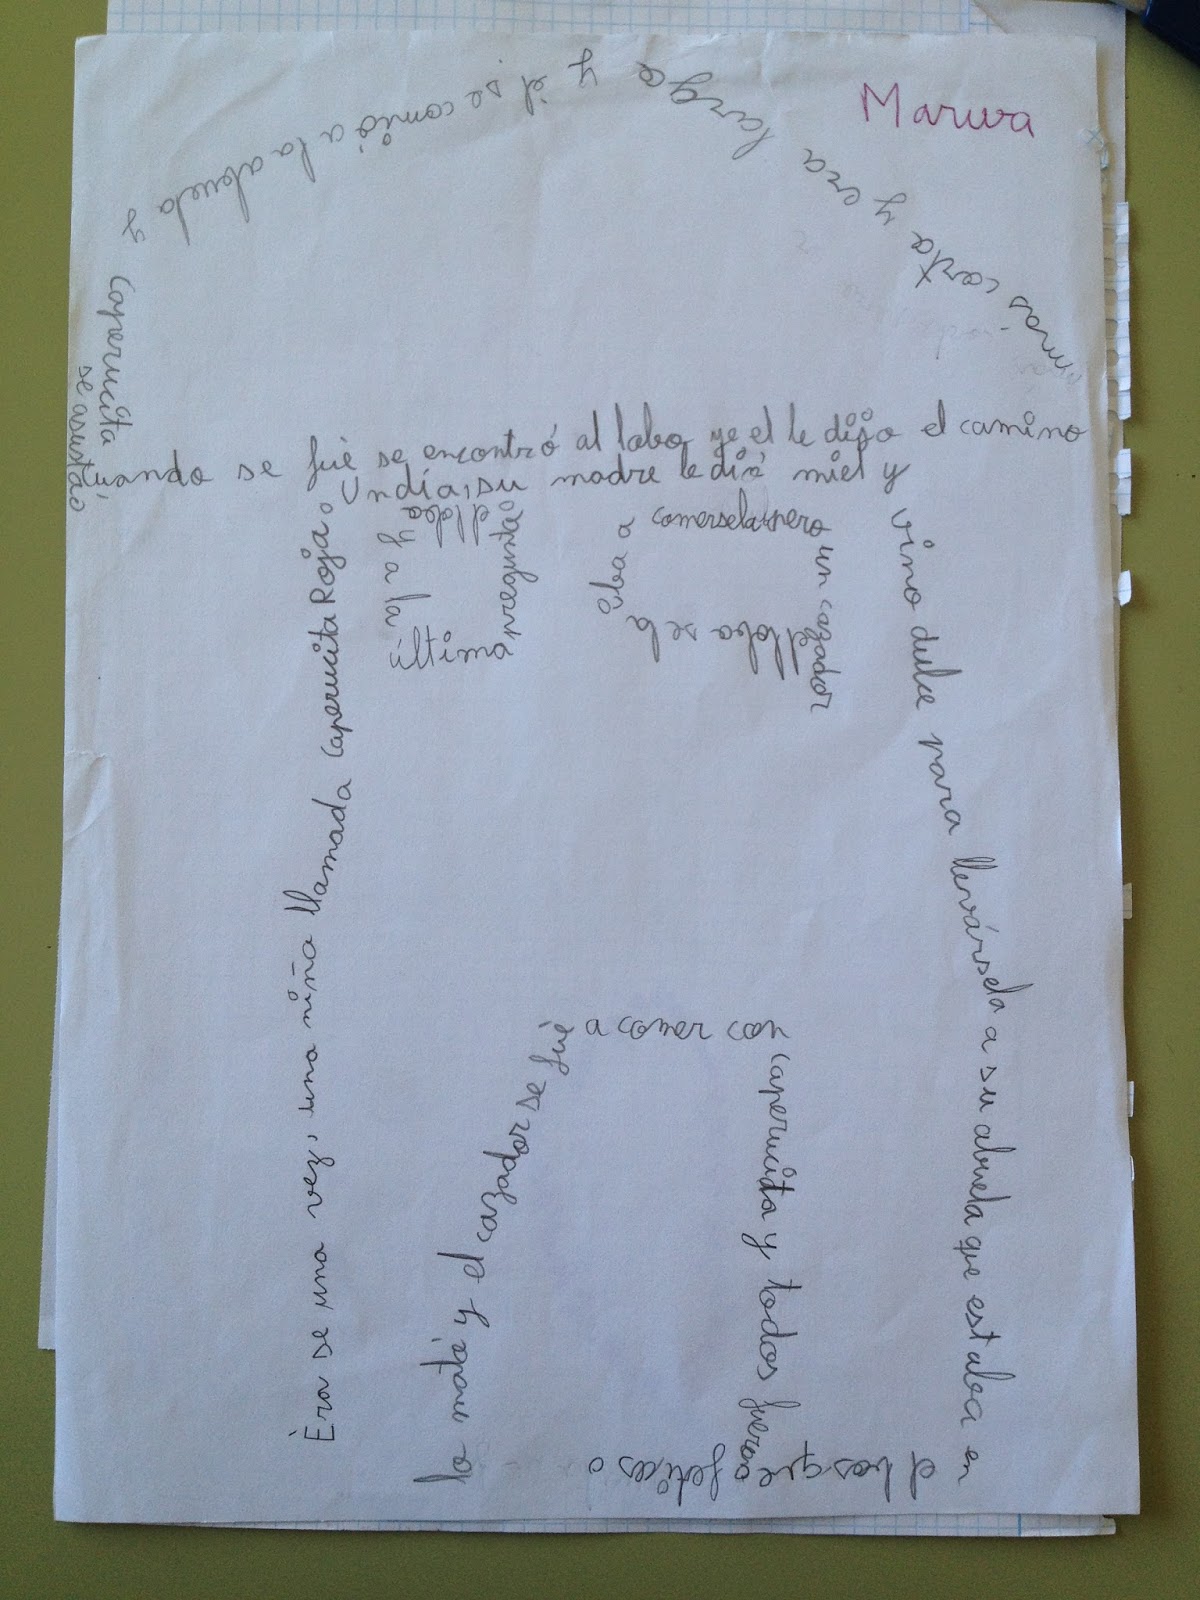 Marwa
Éra se una vez, una niña llamada Caperucita Roja.
Undía, su madre le dió miel y
vino dulce para llevársela a su abuela que estaba en
el bosque
Cuando se fué se encontró al lobo ye el le dijo el camino
mas corta y era
larga
y él se comió a la abuela y
Caperucita
se asustó
y a la
última
pregunta
el lobo
el lobo se la
iba a
comersela pero
un cazador
lo mató y el cazador se fué
a comer con
caperucita y todos fueron
felices